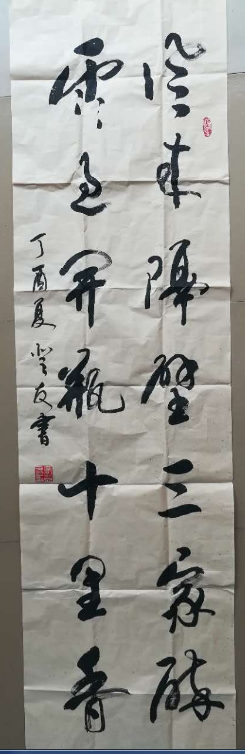 风来隔壁三家醉
雨过開瓶十里香
丁酉夏登友書